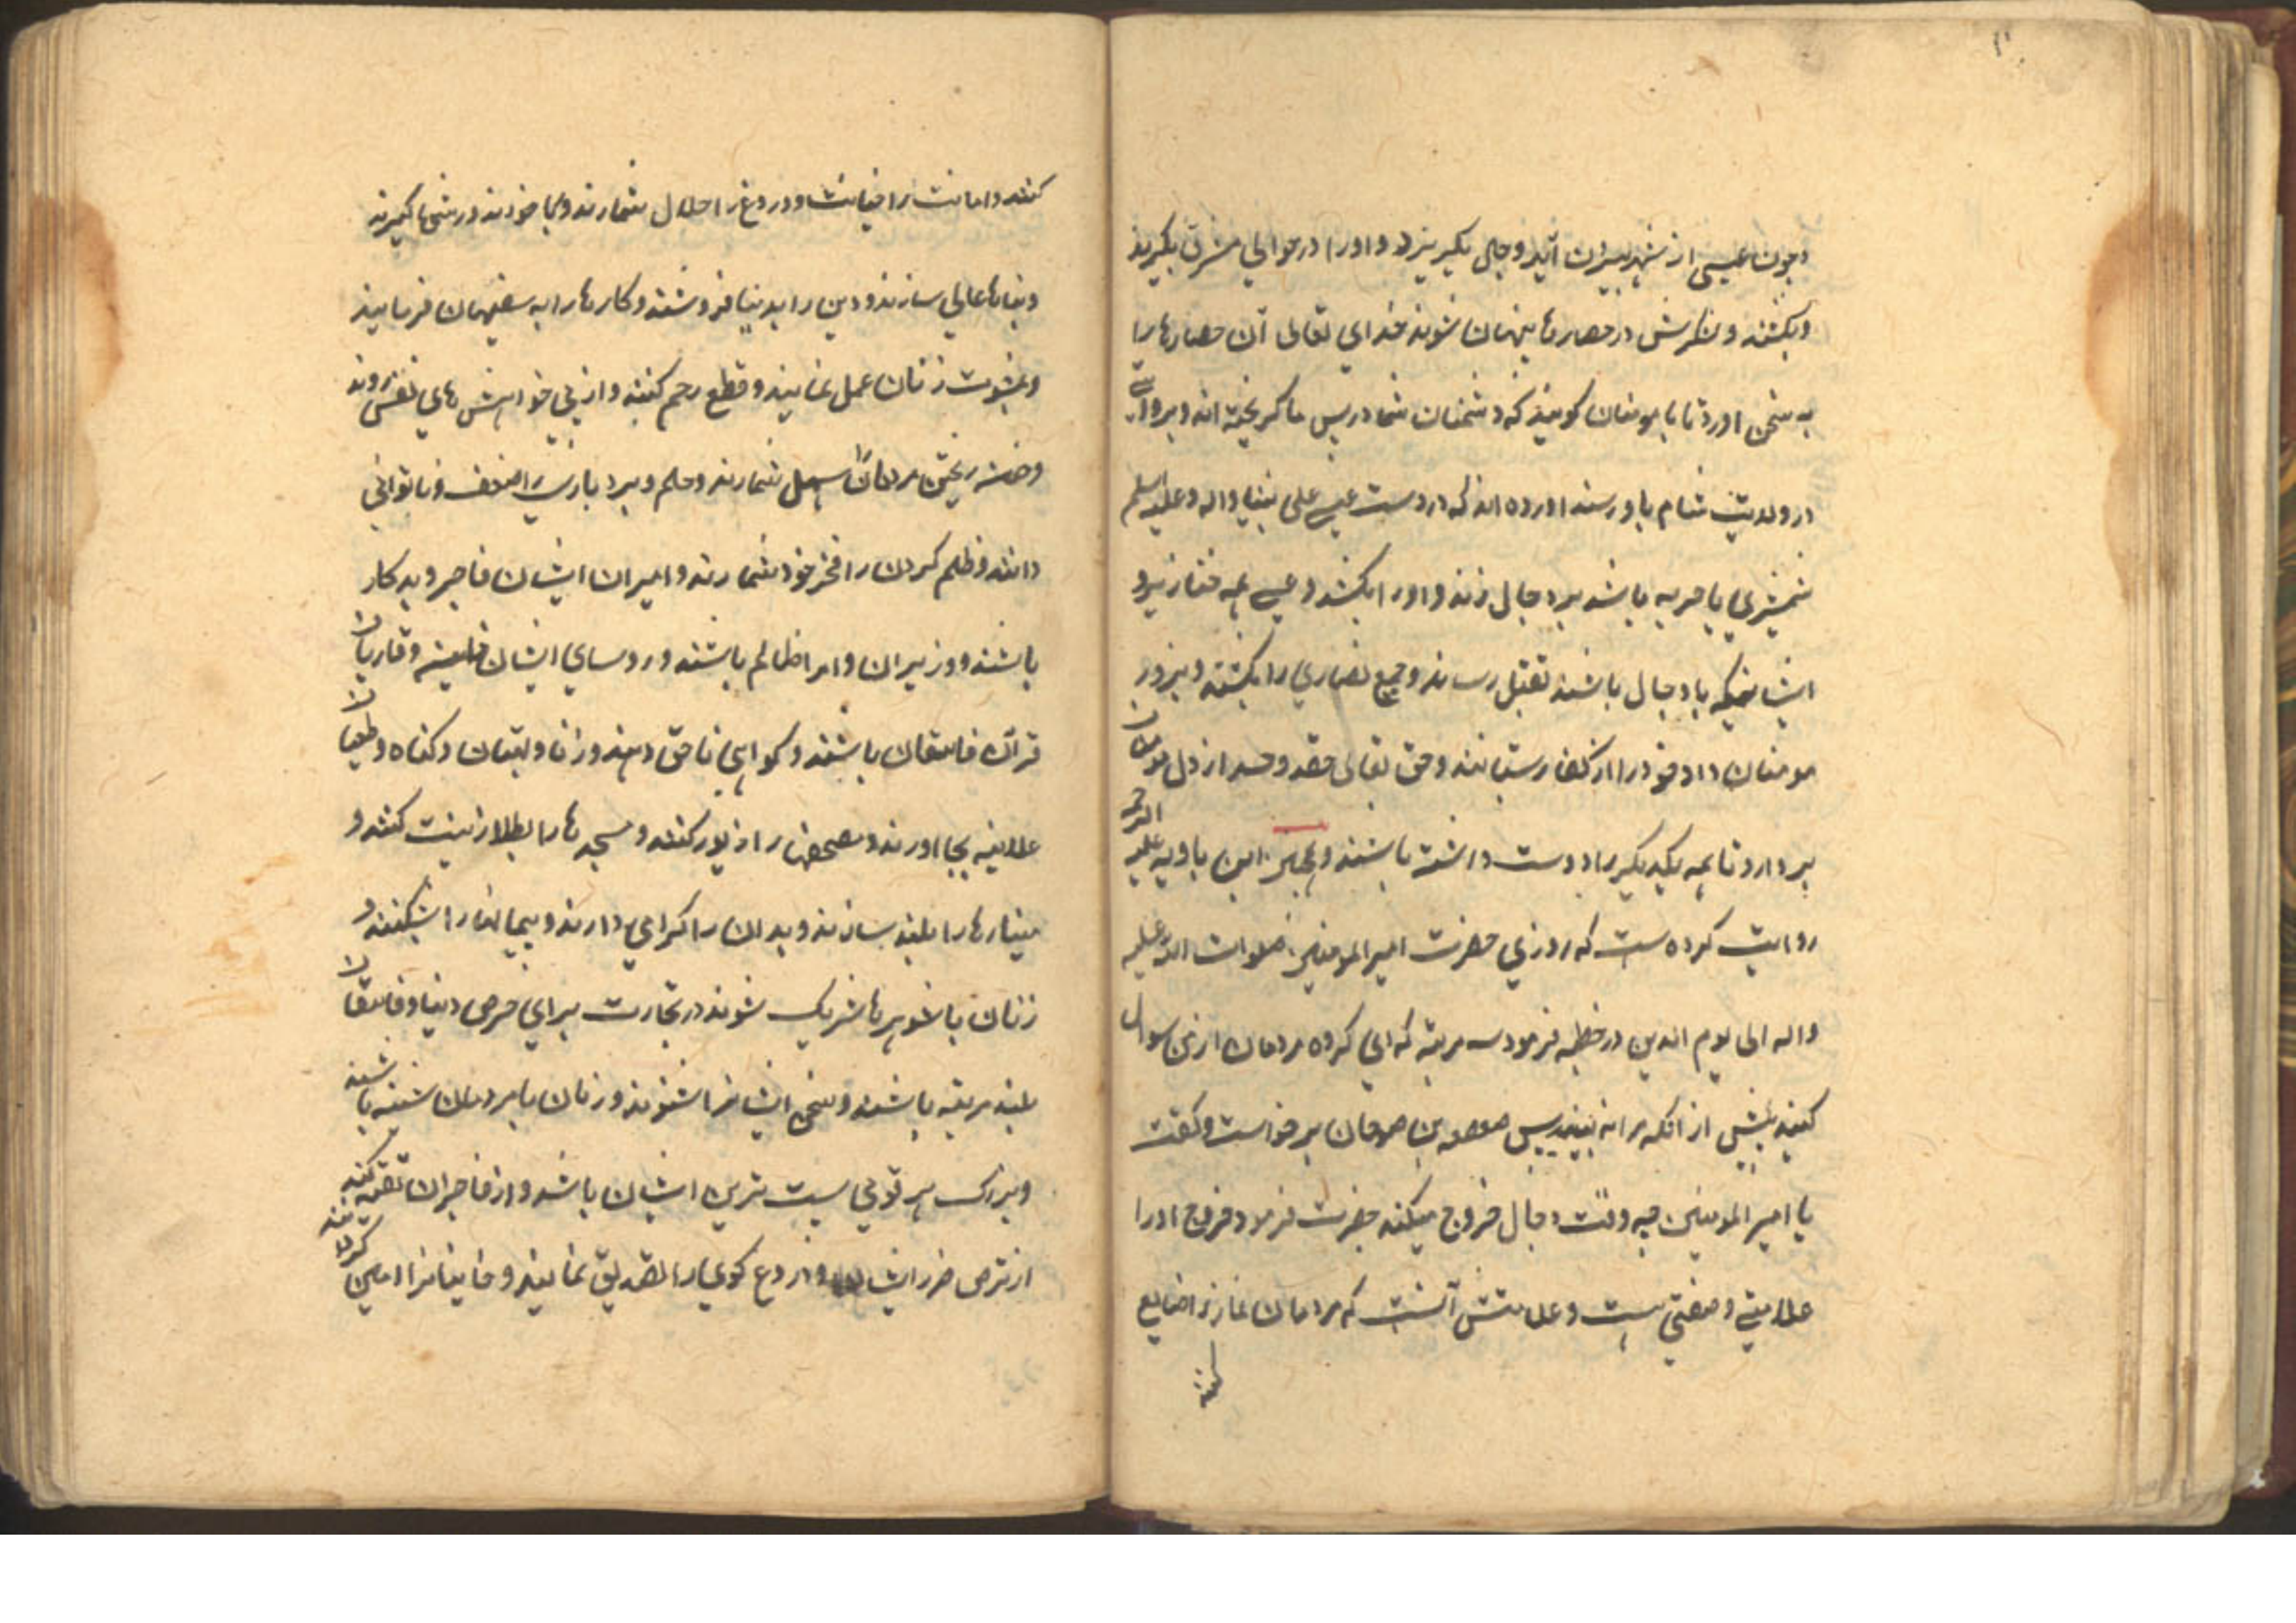 وچون عیسی از شهر بیرون آید دجال بگریزد و او را در حوالی مشرق بگیرند
و بکشند و لشکرش در حصارها پنهان شوند خدای تعالی آن حصارها را
به سخن اورد تا با مومنان کویند که دشمنان شما در پس ما کریخته اند و بروایتی
در ولایت شام باو رسند اورده اند که در دست عیسی علی نبینا واله وعلیه السلم
شمشیری یا حربه باشد بر دجال زند و او را بکشد و عیسی
ایشانیکه با دجال باشند بقتل رساند و جمیع نصاری را بکشند و بزور
مومنان داد خود را از کفار بستانند و حق تعالی حقد و حسد از دل مومنان
بردارد تا همه یکدیگر را دوست داشته باشند ابن بابویه علیه الرحمه
روایت کرده است که روزی حضرت امیر المومنین صلوات الله علیه
واله الی یوم الدین در خطبه فرمود سه مرتبه که ای کروه مردمان از من سوال
کنید پیش از انکه مرا نه بینید پس صعصعه بن صوحان برخواست وکفت
یا امیر المومنین چه وقت دجال خروج میکند حضرت فرمود خروج او را
علامتی و صفتی هست و علامتش آنست که مردمان نماز را ضایع
کنند
کنند و امانت را خیانت و دروغ را حلال شمارند و ربا خورند و رشوتها کیرند
و بناها عالی سازند و دین را بدنیا فروشند و کارها را به سفیهان فرمایند
و بمشورت زنان عمل نمایند و قطع رحم کنند و از پی خواهش های نفس روند
و خون ریختن مردمان را سهل شمارند و حلم و بردباری را ضعف و ناتوانی
دانند و ظلم کردن را فخر خود شمارند و امیران ایشان فاجر و بدکار
باشند و وزیران و امرا ظالم باشند و روسای ایشان خاین و قاریان
قرآن فاسقان باشند و کواهی ناحق دهند و زنا و بهتان و کناه و طغیان
علانیه بجا اورند و مصحفها را زیور کنند و مسجدها را بطلا زینت کنند و
مینارها را بلند سازند و بدان را کرامی دارند و پیمانها را بشکنند و
زنان با شوهرها شریک شوند در تجارت برای حرص دنیا و فاسقان
بلند مرتبه باشند و سخن ایشانرا شنوند و زنان با مردمان باشند
و بزرک هر قومی پست ترین ایشان باشد و از فاجران تقیه کنند
از ترس ضرر ایشان و دروغ کوی را تصدیق نمایند و خاینانرا امین